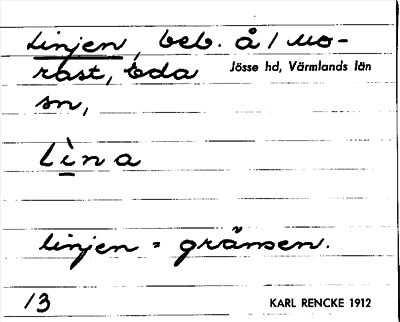 Linjen, beb. å / Mo-
rast, Eda Jösse hd, Värmlands län
sn,
lìna
linjen = gränsen.
13 KARL RENCKE 1912